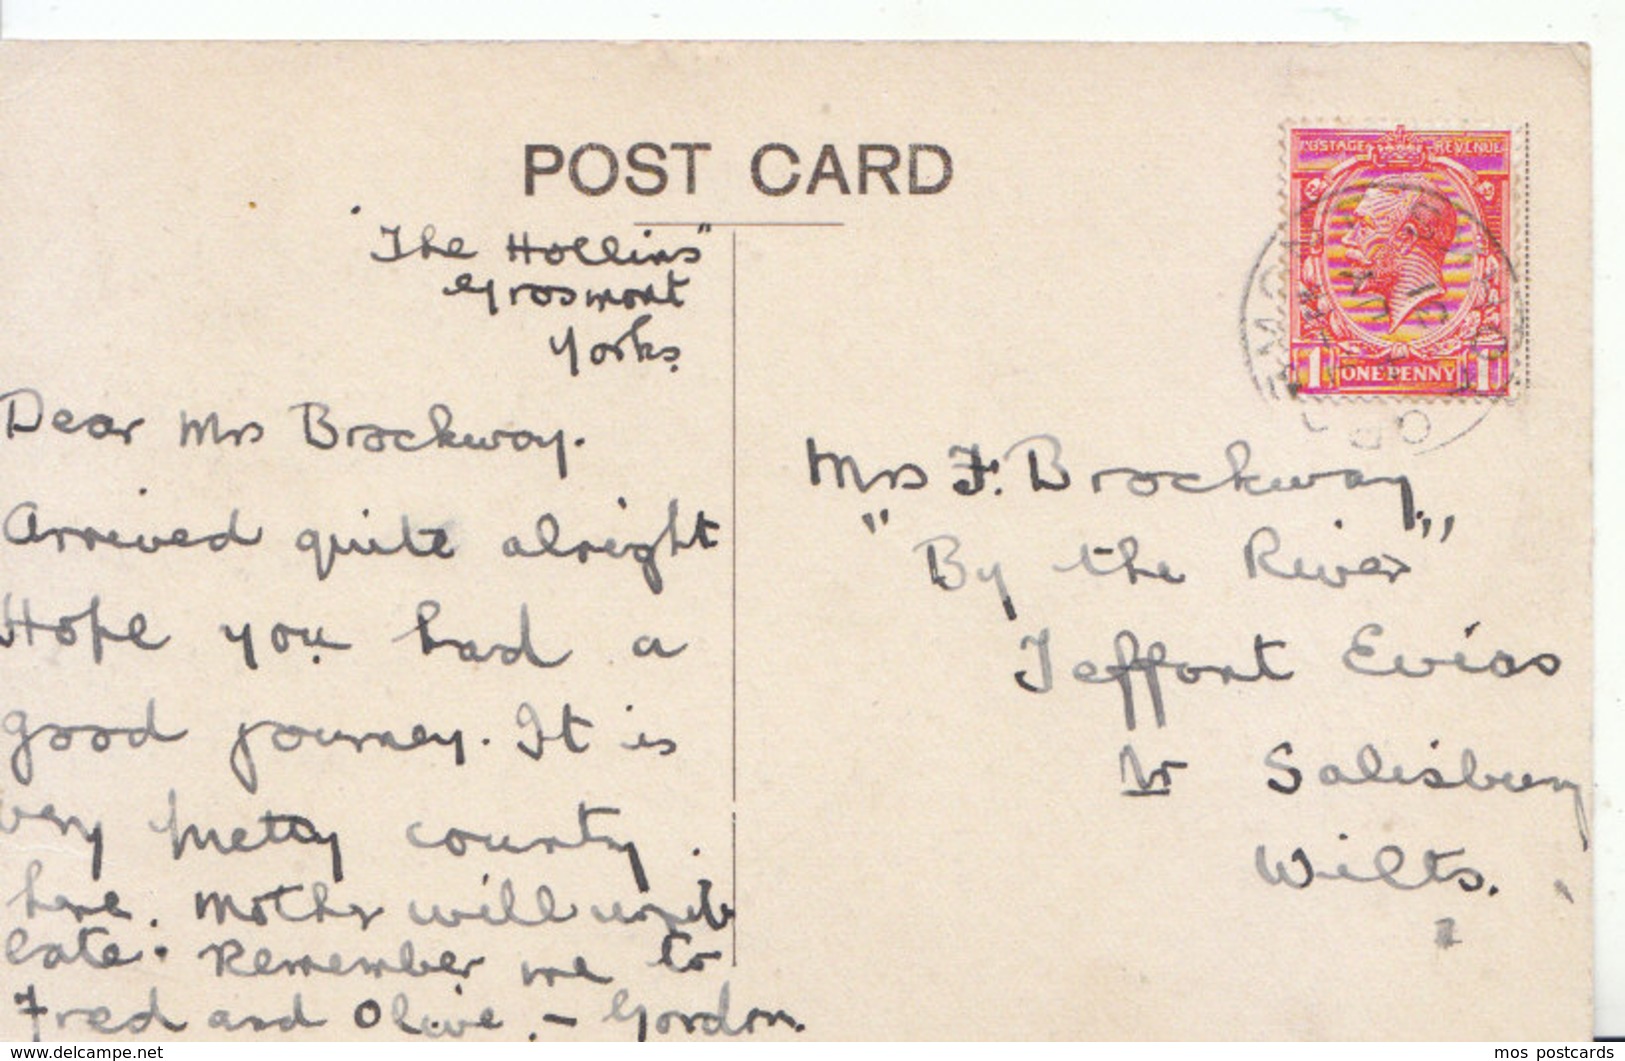 POST CARD
"The Hollins"
Grosmont
Yorks.
Dear Mrs Brockway.
Arrived quite alright
Hope you had a
good journey. It is
very pretty county
here. Mother will write
late. Remember me to
Fred and Olive. - Gordon.
POSTAGE REVENUE
1 ONE PENNY 1
Mrs F. Brockway,
"By the River"
Teffont Evias
Nr Salisbury
Wilts.
www.delcampe.net
mos postcards